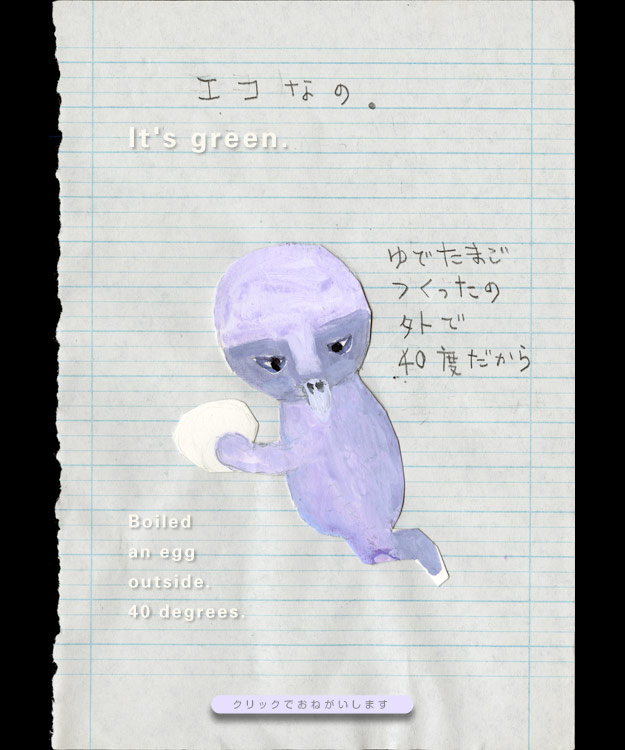 エコなの。
It's green.
ゆでたまご
つくったの
外で
40度だから
Boiled
an egg
outside.
40 degrees.
クリックでおねがいします